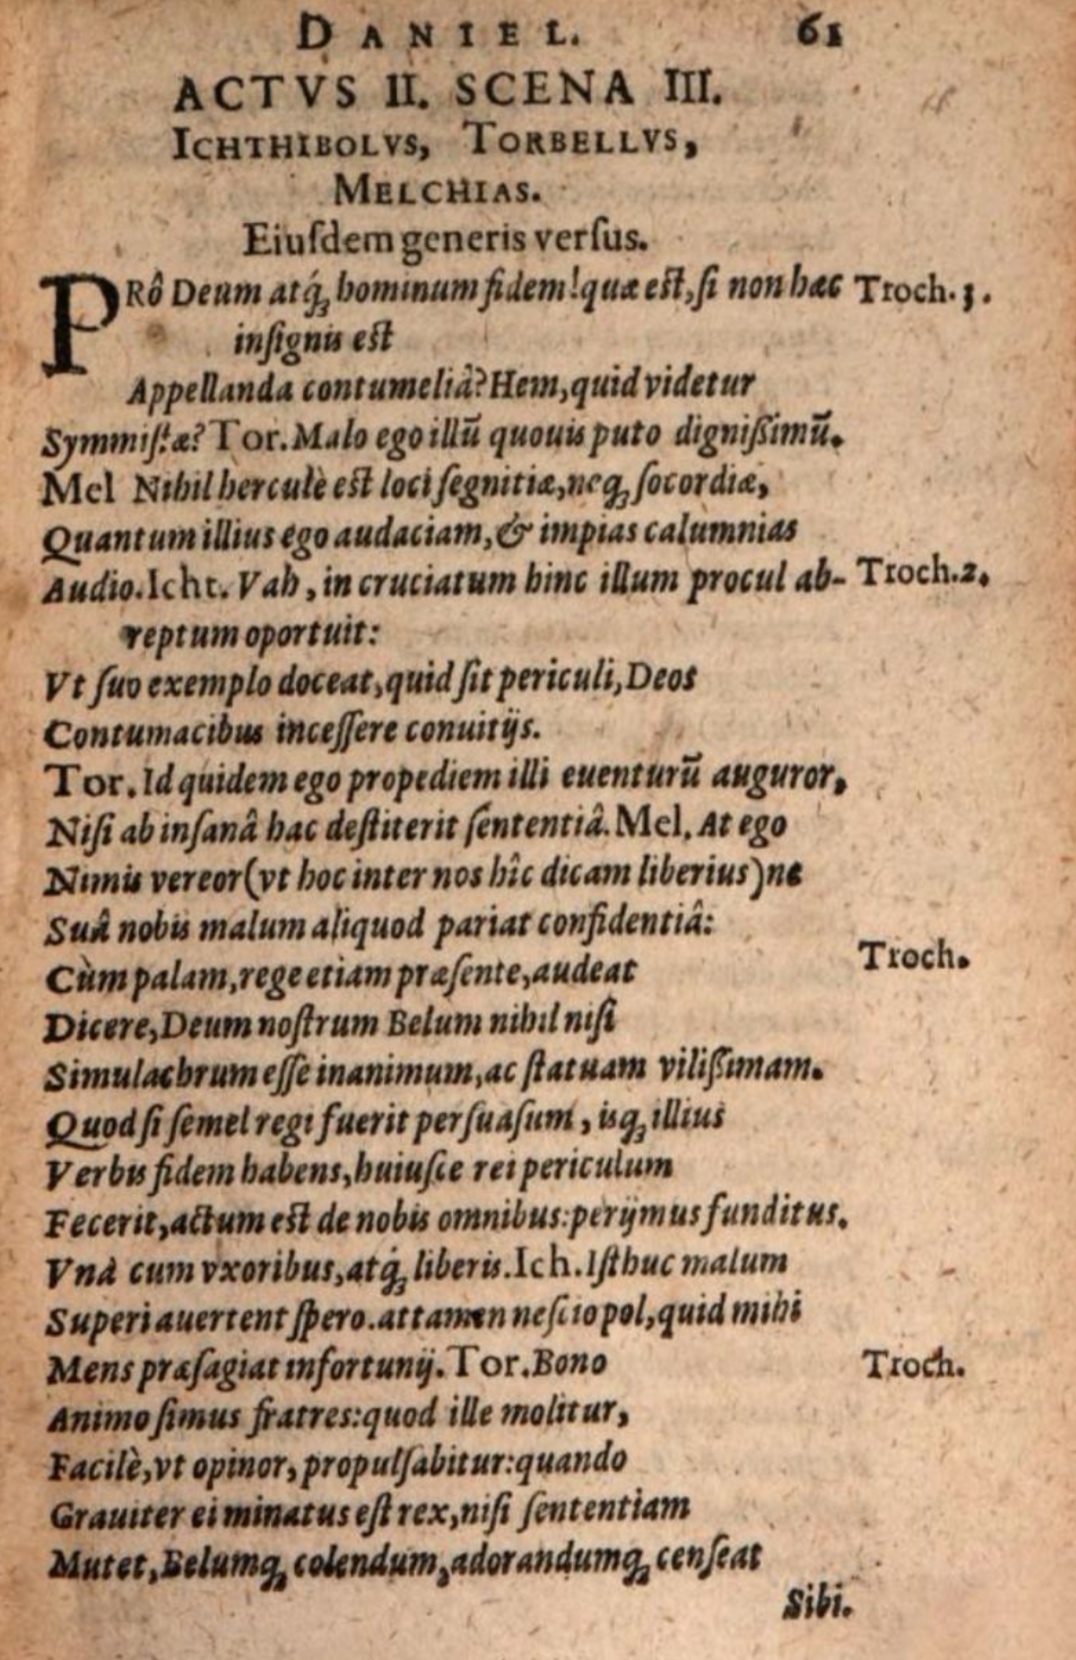 DANIEL. 61
ACTVS II. SCENA III.
ICHTHIBOLVS, TORBELLVS,
MELCHIAS.
Eiuſdem generis verſus.
PRô Deum atq́ꝫ hominum fidem! quæ eſt, ſi non hæc Troch. 3.
inſignis eſt
Appellanda contumeliâ? Hem, quid videtur
Symmiſtæ? Tor. Malo ego illũ quouis puto digniſſimũ.
Mel Nihil herculè eſt loci ſegnitiæ, neqꝫ ſocordiæ,
Quantum illius ego audaciam, & impias calumnias
Audio. Icht. Vah, in cruciatum hinc illum procul ab- Troch. 2.
reptum oportuit:
Vt ſuo exemplo doceat, quid ſit periculi, Deos
Contumacibus inceſſere conuitijs.
Tor. Id quidem ego propediem illi euenturũ auguror,
Niſi ab inſanâ hac deſtiterit ſententiâ. Mel. At ego
Nimis vereor (vt hoc inter nos hîc dicam liberius) ne
Suâ nobis malum aliquod pariat confidentiâ:
Cùm palam, rege etiam præſente, audeat Troch.
Dicere, Deum noſtrum Belum nihil niſi
Simulachrum eſſe inanimum, ac ſtatuam viliſſimam.
Quod ſi ſemel regi fuerit perſuaſum, isqꝫ illius
Verbis fidem habens, huiuſce rei periculum
Fecerit, actum eſt de nobis omnibus: perijmus funditus.
Vnà cum vxoribus, atq́ꝫ liberis. Ich. Iſthuc malum
Superi auertent ſpero. attamen neſcio pol, quid mihi
Mens præſagiat infortunij. Tor. Bono Troch.
Animo ſimus fratres: quod ille molitur,
Facilè, vt opinor, propulſabitur: quando
Grauiter ei minatus eſt rex, niſi ſententiam
Mutet, Belumqꝫ colendum, adorandumqꝫ cenſeat
Sibi.